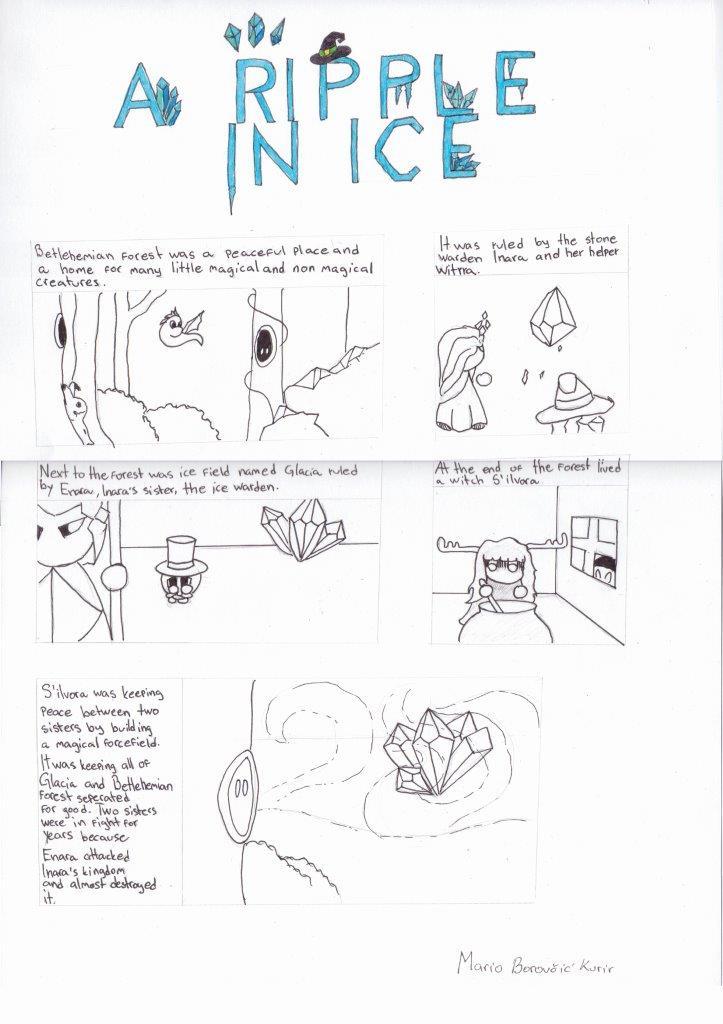 A RIPPLE
IN ICE
Betlehemian Forest was a peaceful place and
a home for many little magical and non magical
creatures.
It was ruled by the stone
warden Inara and her helper
Witrra.
Next to the forest was ice field named Glacia ruled
by Enara, Inara's sister, the ice warden.
At the end of the forest lived
a witch S'ilvora
S'ilvora was keeping
peace between two
sisters by building
a magical forcefield.
It was keeping all of
Glacia and Betlehemian
Forest seperated
for good. Two sisters
were in fight for
years because
Enara attacked
Inara's kingdom
and almost destroyed
it.
Mario Borovčić Kurir